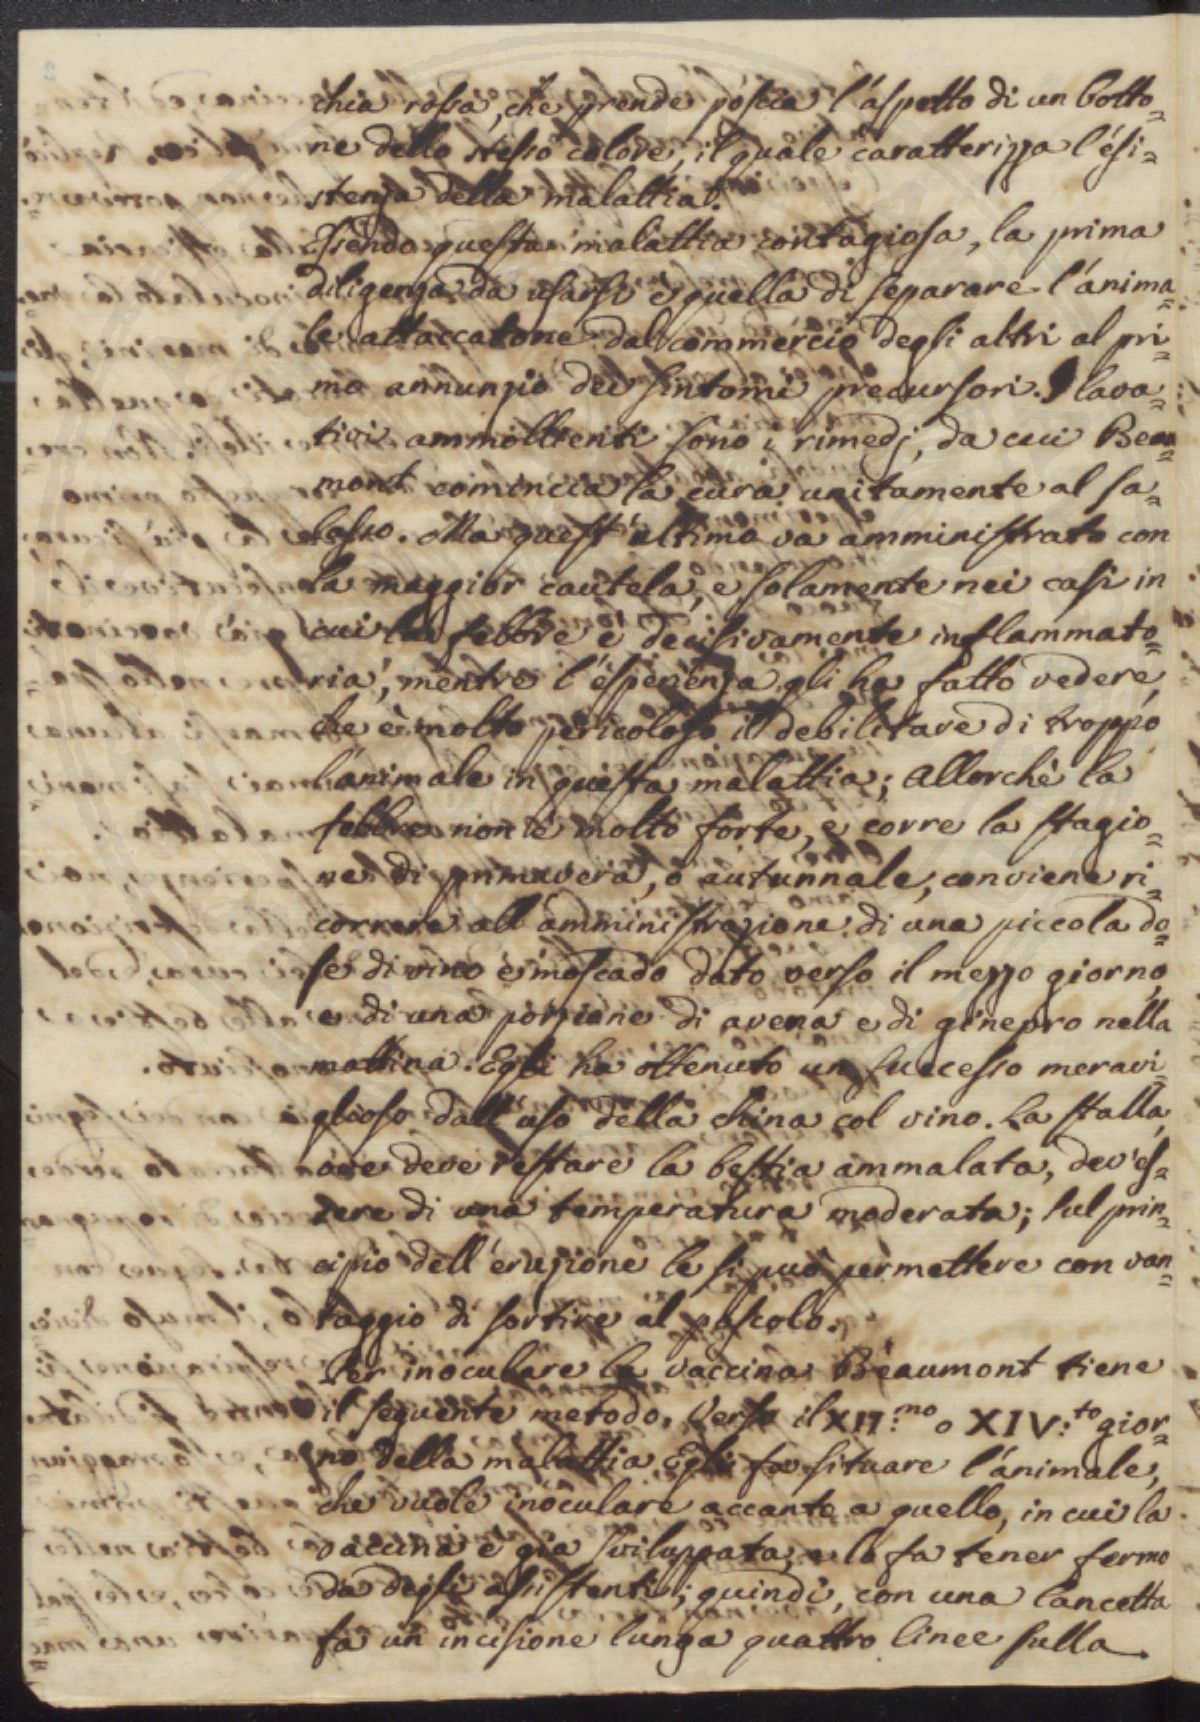 chia rossa, che prende poscia l'aspetto di un botto=
ne dello stesso colore, il quale caratterizza l'esi=
stenza della malattia.
Essendo questa malattia contagiosa, la prima
diligenza da usarsi è quella di separare l'anima=
le attaccatone dal commercio degli altri al pri=
mo annunzio dei sintomi precursori. I lava=
tivi ammollienti sono i rimedj, da cui Beau=
mont comincia la cura unitamente al sa=
lasso. Ma quest'ultimo va amministrato con
la maggior cautela, e solamente nei casi in
cui la febbre è decisivamente inflammato=
ria, mentre l'esperienza gli ha fatto vedere,
che è molto pericoloso il debilitare di troppo
l'animale in questa malattia; Allorchè la
febbre non è molto forte, e corre la stagio=
ne di primavera, o autunnale, conviene ri=
correre all'amministrazione di una piccola do=
se di vino e moscado dato verso il mezzo giorno,
e di una porzione di avena e di ginepro nella
mattina. Egli ha ottenuto un successo meravi=
glioso dall'uso della China col vino. La stalla,
ove deve restare la bestia ammalata, dev'es=
sere di una temperatura moderata; sul prin=
cipio dell'eruzione le si può permettere con van=
taggio di sortire al pascolo.
Per inoculare la vaccina Beaumont tiene
il seguente metodo. Verso il XII:mo o XIV:to gior=
no della malattia Egli fa situare l'animale,
che vuole inoculare accanto a quello, in cui la
vaccina è già sviluppata, e lo fa tener fermo
da degli assistenti; quindi, con una lancetta
fa un incisione lunga quattro linee sulla